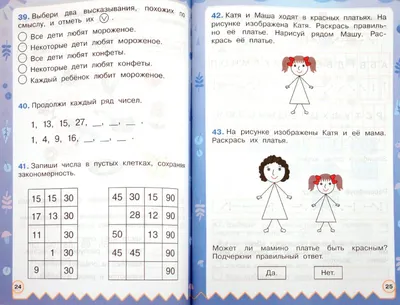 39. Выбери два высказывания, похожих по
смыслу, и отметь их
Все дети любят мороженое.
Некоторые дети любят мороженое.
Все дети любят конфеты.
Некоторые дети любят конфеты.
Каждый ребёнок любит мороженое.
40. Продолжи каждый ряд чисел.
1, 13, 15, 27, __, __, __.
1, 4, 9, 16, __, __, __.
41. Запиши числа в пустых клетках, сохраняя
закономерность.
15 15 30
17 13 30
11 30
1 30
9 30
45 30 15 90
28 12 90
50 13 90
90
90
24
42. Катя и Маша ходят в красных платьях. На
рисунке изображена Катя. Раскрась правиль-
но её платье. Нарисуй рядом Машу. Рас-
крась её платье.
43. На рисунке изображены Катя и её мама.
Раскрась их платья.
Может ли мамино платье быть красным?
Подчеркни правильный ответ.
Да. Нет.
25